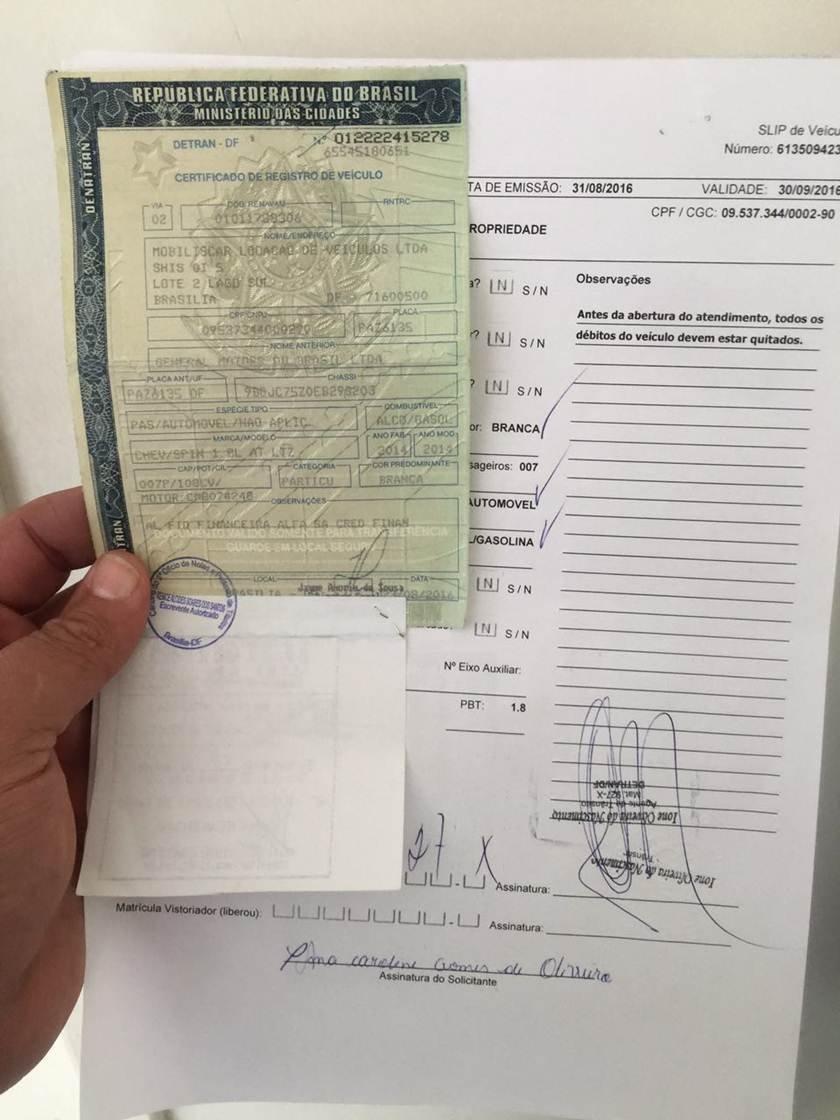 REPÚBLICA FEDERATIVA DO BRASIL
MINISTÉRIO DAS CIDADES
DENATRAN
DETRAN - DF Nº 012222415278
65545180651
CERTIFICADO DE REGISTRO DE VEÍCULO
VIA CÓD. RENAVAM RNTRC
02
NOME/ENDEREÇO
MOBILISCAR LOCACAO DE VEICULOS LTDA
SHIS QI 5
LOTE 2 LAGO SUL
BRASILIA DF 71600500
CPF/CNPJ PLACA
PAZ6135
NOME ANTERIOR
GENERAL MOTORS DO BRASIL LTDA
PLACA ANT/UF CHASSI
PAZ6135 DF
ESPÉCIE TIPO COMBUSTÍVEL
PAS/AUTOMOVEL/NAO APLIC ALCO/GASOL
MARCA/MODELO ANO FAB ANO MOD
CHEV/SPIN 1.8L AT LTZ 2014 2014
CAP/POT/CIL CATEGORIA COR PREDOMINANTE
007P/108CV/ PARTICU BRANCA
MOTOR: OBSERVAÇÕES
AL FID FINANCEIRA ALFA SA CRED FINAN
DOCUMENTO VÁLIDO SOMENTE PARA TRANSFERÊNCIA
GUARDE EM LOCAL SEGURO
LOCAL DATA
/08/2016
TRAN
Escrevente Autorizado
Brasília-DF
SLIP de Veícu
Número: 613509423
TA DE EMISSÃO: 31/08/2016 VALIDADE: 30/09/2016
CPF / CGC: 09.537.344/0002-90
ROPRIEDADE
a? N S / N Observações
Antes da abertura do atendimento, todos os
débitos do veículo devem estar quitados.
? N S / N
? N S / N
or: BRANCA
sageiros: 007
AUTOMOVEL
L/GASOLINA
N S / N
N S / N
Nº Eixo Auxiliar:
PBT: 1.8
DETRAN/DF
Mat. 927-X
Agente de Trânsito
Ione Oliveira do Nascimento
Ione Oliveira do Nascimento
27 X
- Assinatura:
Matrícula Vistoriador (liberou): - Assinatura:
Ana Caroline Gomes de Oliveira
Assinatura do Solicitante